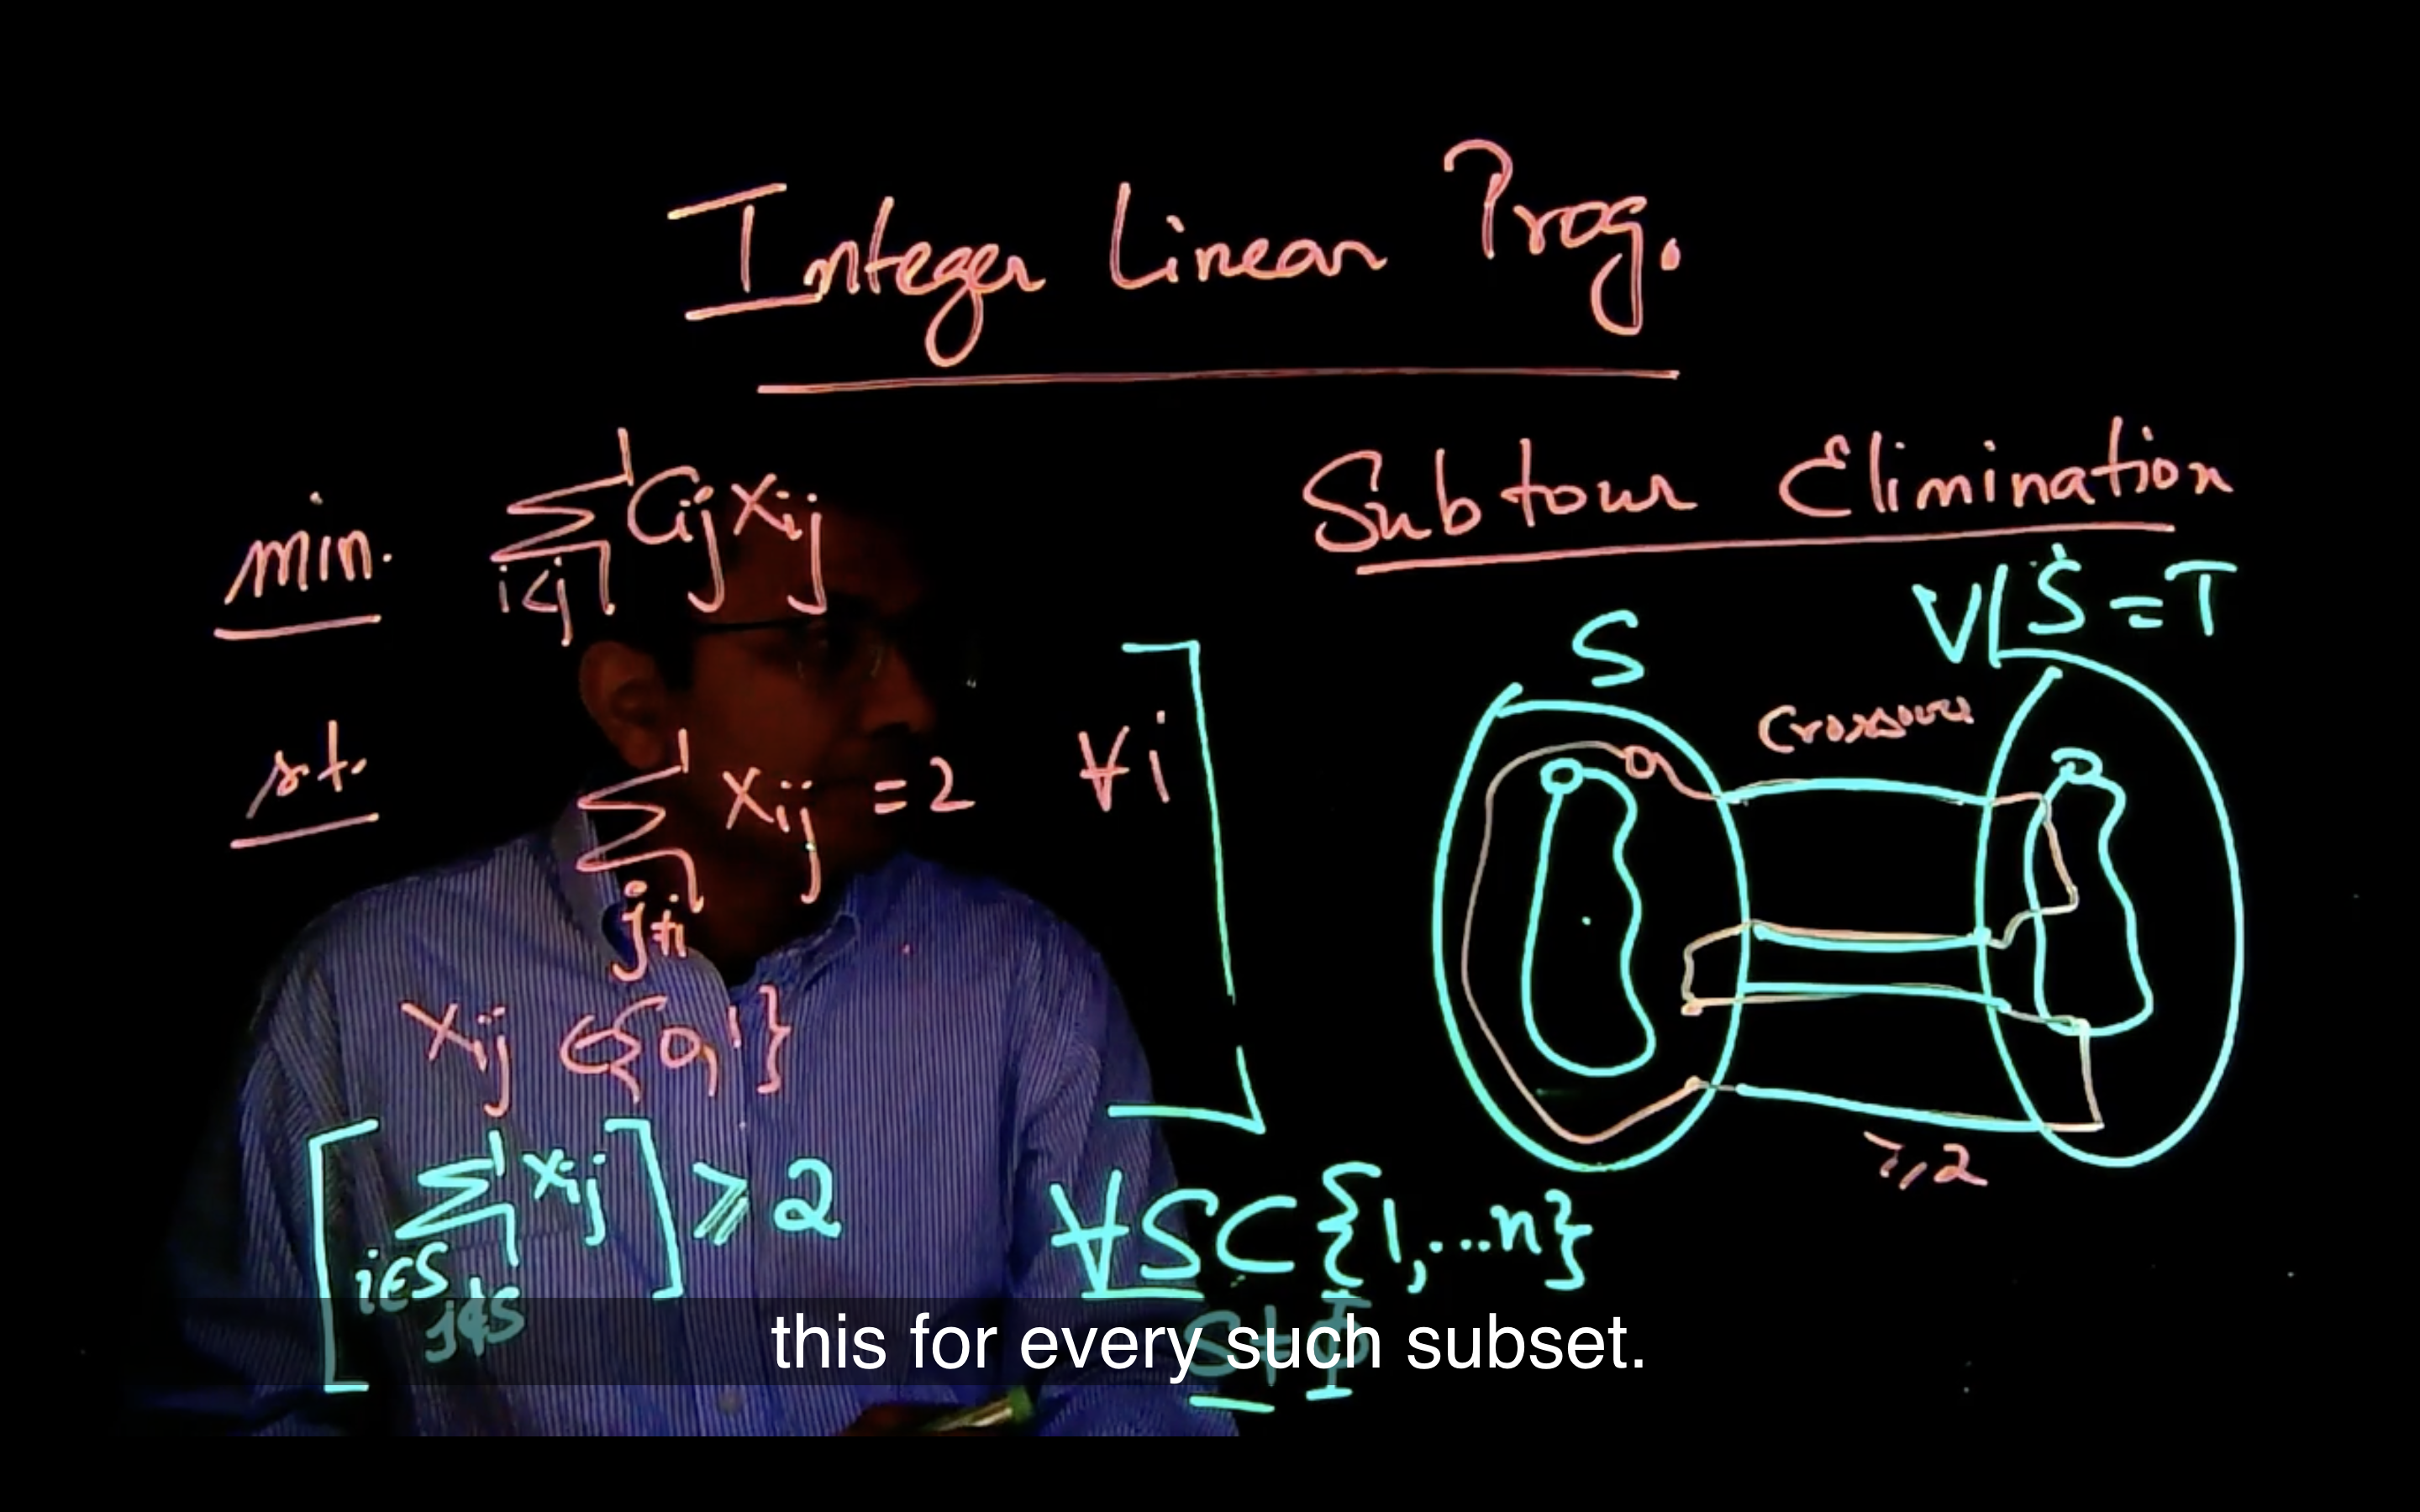 Integer Linear Prog.
min. ∑ Cij xij
i<j
s.t. ∑ xij = 2 ∀i
j≠i
xij ∈ {0,1}
[∑ xij] ≥ 2 ∀S⊂{1,...n}
i∈S
j∉S
S≠Φ
Subtour Elimination
S
V\S = T
Crossover
≥2
this for every such subset.